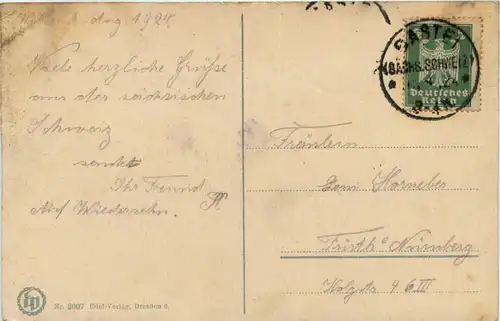 Aug 1924
Viele herzliche Grüße
aus der sächsischen
Schweiz
sendet
Ihr Freund
Auf Wiedersehn.
Nr. 2007 Edel-Verlag, Dresden 6.
(SÄCHS. SCHWEIZ)
Deutsches
Reich
Fräulein
Horneber
Fürth b/ Nürnberg
Holzstr 46 III